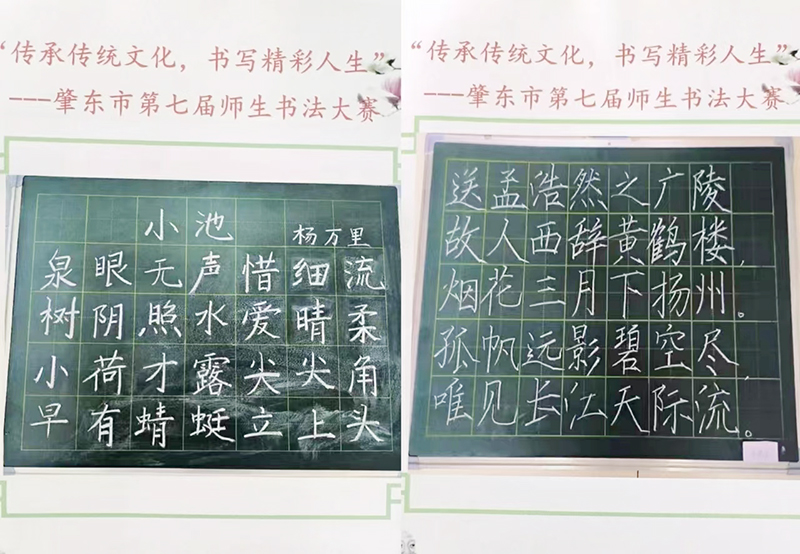 “传承传统文化，书写精彩人生”
---肇东市第七届师生书法大赛
小池
杨万里
泉眼无声惜细流
树阴照水爱晴柔
小荷才露尖尖角
早有蜻蜓立上头
“传承传统文化，书写精彩人生”
---肇东市第七届师生书法大赛
送孟浩然之广陵
故人西辞黄鹤楼，
烟花三月下扬州。
孤帆远影碧空尽，
唯见长江天际流。